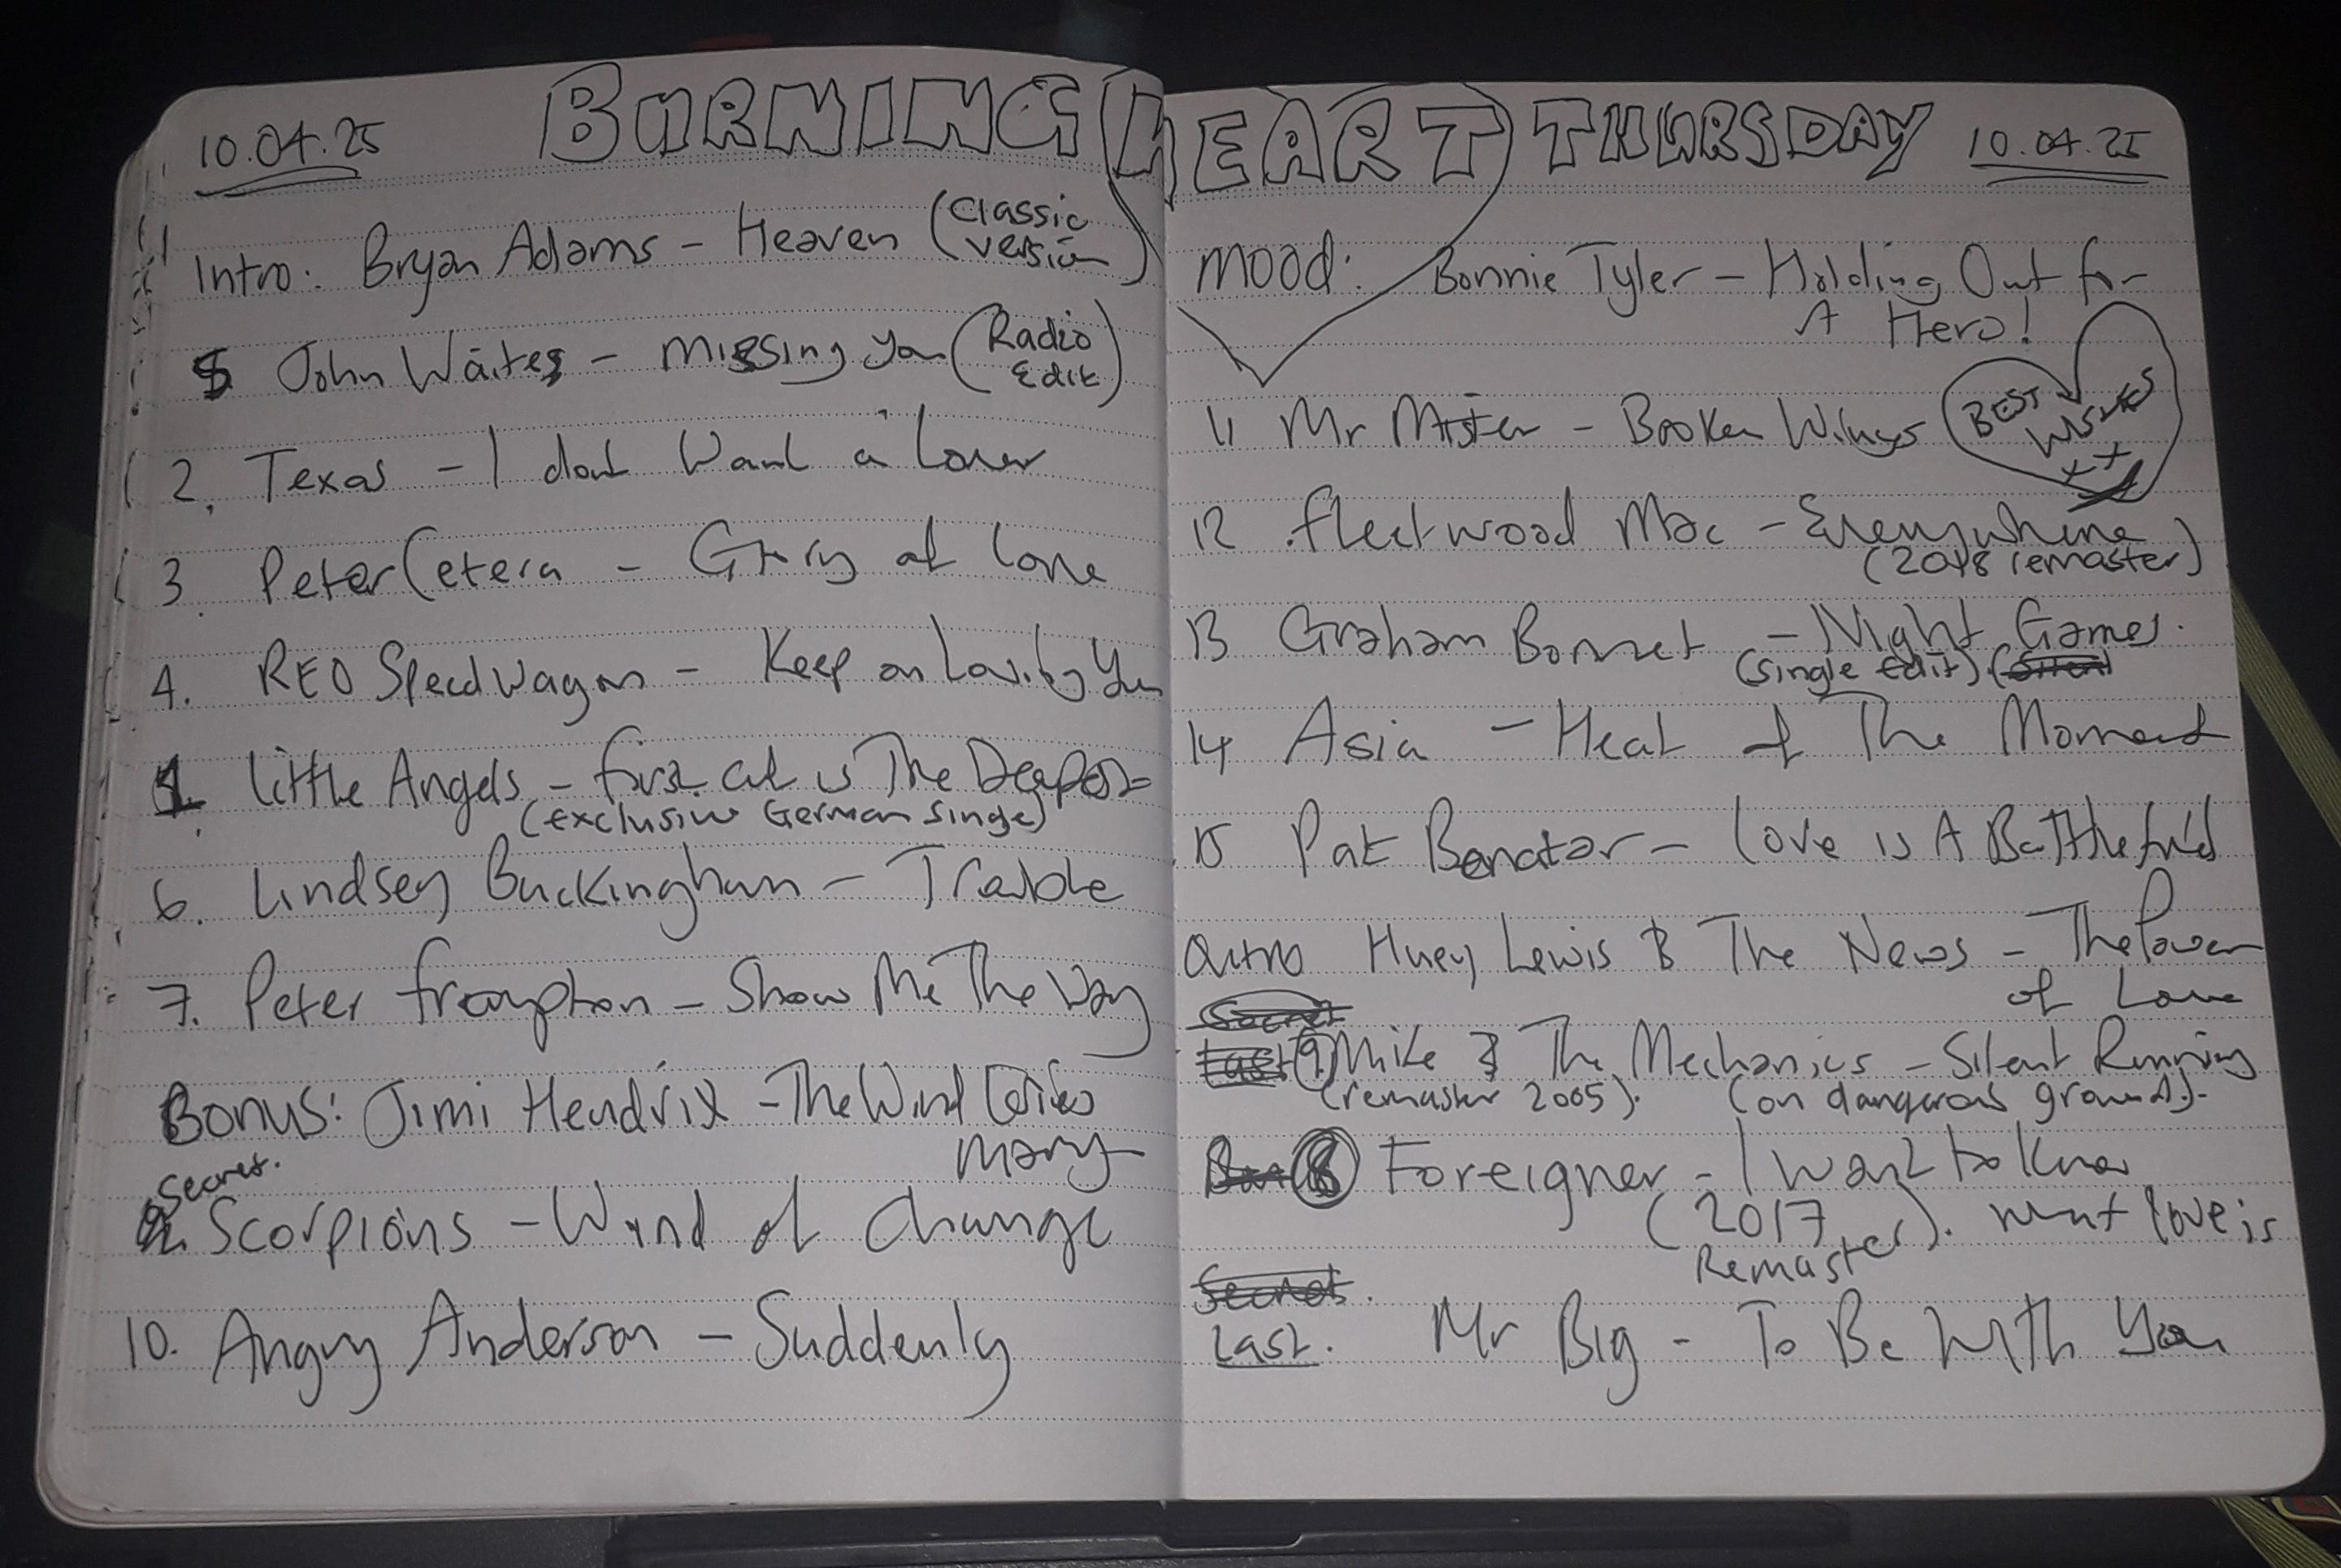 10.04.25 BURNING HEART THURSDAY 10.04.25
Intro: Bryan Adams - Heaven (Classic
version)
5 John Waites - Missing you (Radio
Edit)
2. Texas - I dont Want a Lover
3. Peter Cetera - Glory of Love
4. REO Speedwagon - Keep on Loving You
1. Little Angels - first cut is The Deepest
(exclusive German Single)
6. Lindsey Buckingham - Trouble
7. Peter frampton - Show Me The Way
Bonus: Jimi Hendrix - The Wind Cries
Mary
Secret.
Scorpions - Wind of Change
10. Angry Anderson - Suddenly
Mood: Bonnie Tyler - Holding Out for
A Hero!
BEST
WISHES
xx
11 Mr Mister - Broken Wings
12. fleetwood Mac - Everywhere
(2018 remaster)
13 Graham Bonnet - Night Games.
(single edit)
14 Asia - Heat of The Moment
15 Pat Benatar - Love is A Battlefield
Outro Huey Lewis & The News - The Power
of Love
Secret
Last 9 Mike & The Mechanics - Silent Running
(remaster 2005). (on dangerous ground).
8 Foreigner - I want to know
(2017 what love is
Remaster).
Secret.
Last. Mr Big - To Be With You